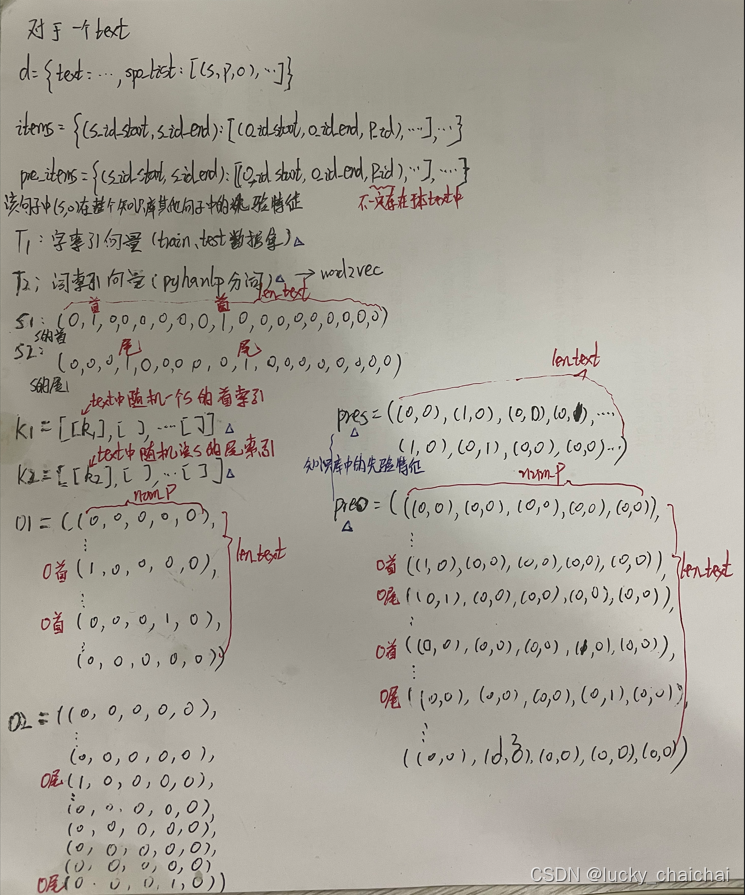 对于一个text
d={text:…, spo_list:[(s,p,o),…]}
items={(s_id_start, s_id_end):[(o_id_start, o_id_end, p_id),…],…}
pre_items={(s_id_start, s_id_end):[(o_id_start, o_id_end, p_id),…],…}
该句子中(s,o)在整个知识库其他句子中的先验特征
不一定存在本text中
T1:字索引向量(train、test数据集)△
T2:词索引向量(pyhanlp分词)△→word2vec
首 首 len_text
S1:(0,1,0,0,0,0,0,0,1,0,0,0,0,0,0,0,0)
S的首
尾 尾
S2:(0,0,0,1,0,0,0,0,1,0,0,0,0,0,0,0)
S的尾
text中随机一个S的首索引
K1=[[k1],[ ],…[ ]]△
text中随机该S的尾索引
K2=[[k2],[ ],…[ ]]△
num_P
O1=((0,0,0,0,0),
⋮
O首(1,0,0,0,0),
⋮
O首(0,0,0,1,0),
⋮
(0,0,0,0,0))
len_text
O2=((0,0,0,0,0),
⋮
(0,0,0,0,0),
O尾(1,0,0,0,0),
(0,0,0,0,0),
(0,0,0,0,0),
(0,0,0,0,0),
(0,0,0,0,0),
O尾(0,0,0,1,0))
len_text
pres=((0,0),(1,0),(0,0),(0,0),…
(1,0),(0,1),(0,0),(0,0)…)
△
知识库中的先验特征
num_P
preo=(((0,0),(0,0),(0,0),(0,0),(0,0)),
△
⋮
O首((1,0),(0,0),(0,0),(0,0),(0,0)),
O尾((0,1),(0,0),(0,0),(0,0),(0,0)),
⋮
O首((0,0),(0,0),(0,0),(1,0),(0,0)),
⋮
O尾((0,0),(0,0),(0,0),(0,1),(0,0)),
⋮
((0,0),(0,0),(0,0),(0,0),(0,0))
len_text
CSDN @lucky_chaichai